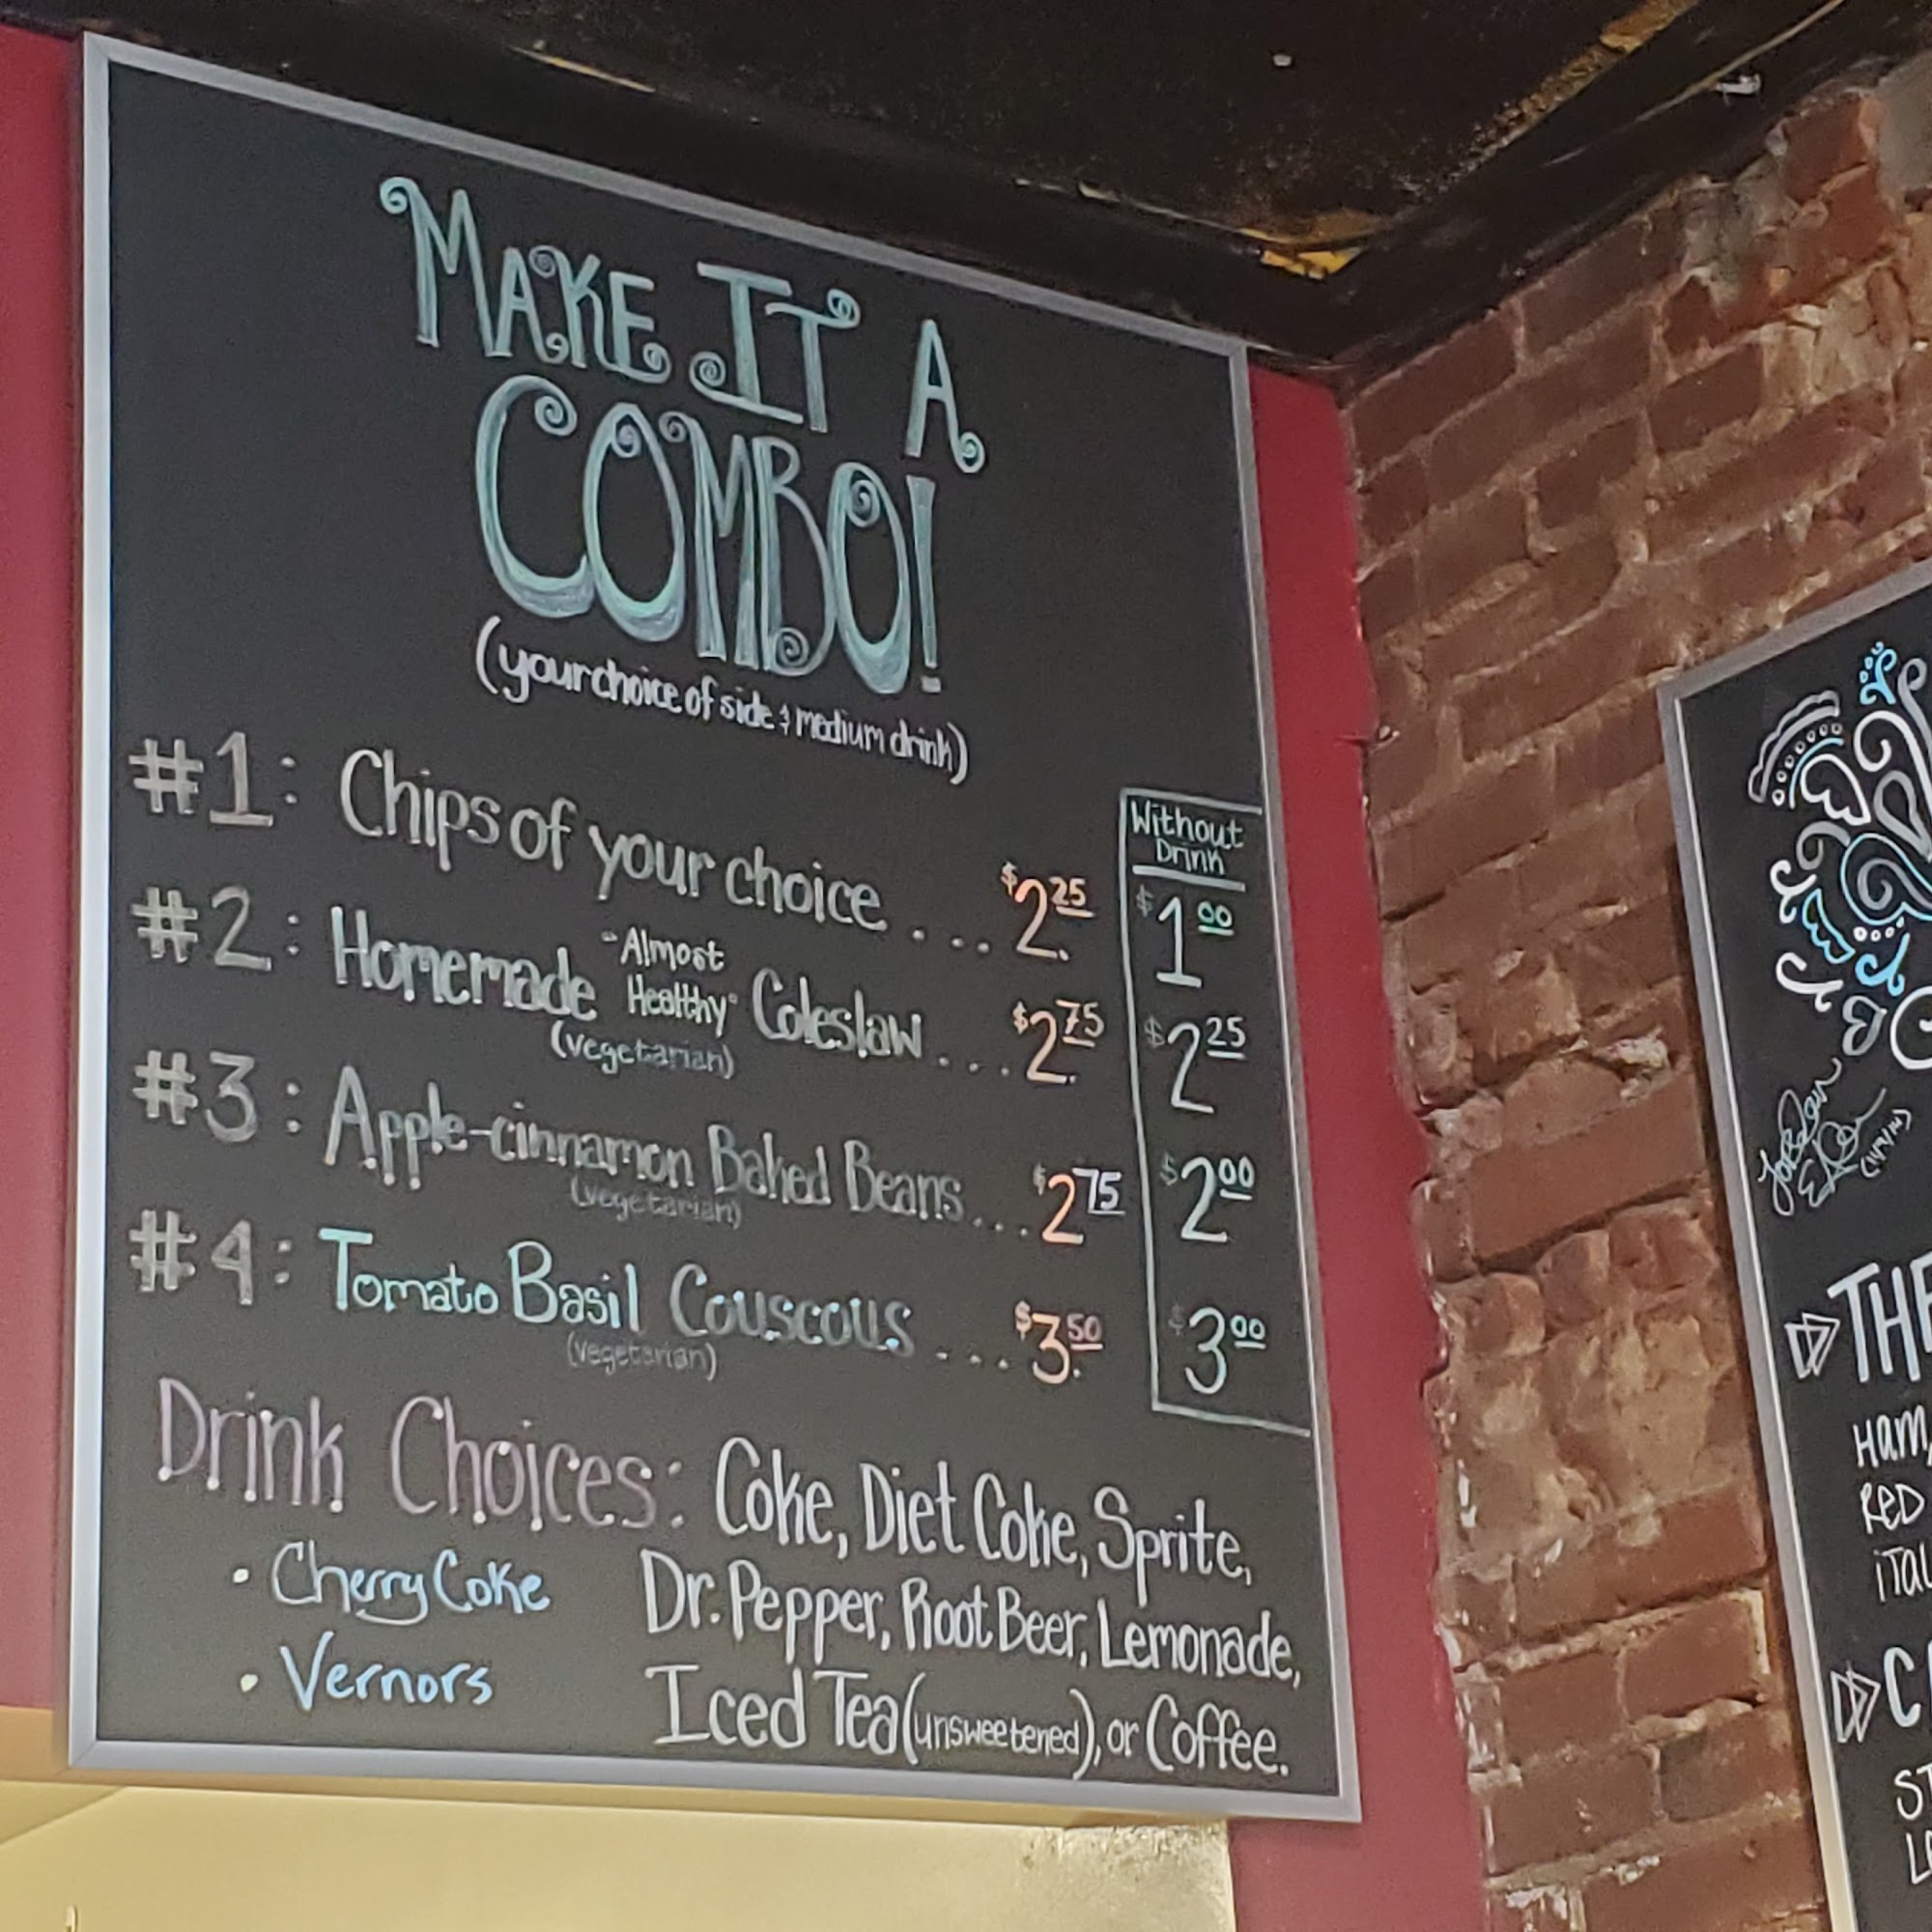 MAKE IT A
COMBO!
(your choice of side & medium drink)
Without
Drink
#1: Chips of your choice .... $2.25 $1 00
#2: Homemade "Almost Healthy" Coleslaw .... $2.75 $2 25
(vegetarian)
#3: Apple-cinnamon Baked Beans.... $2 75 $2 00
(vegetarian)
#4: Tomato Basil Couscous .... $3.50 $3 00
(vegetarian)
Drink Choices: Coke, Diet Coke, Sprite,
• Cherry Coke Dr. Pepper, Root Beer, Lemonade,
• Vernors Iced Tea (unsweetened), or Coffee.
THE
HAM,
RED
ITAL
C
ST